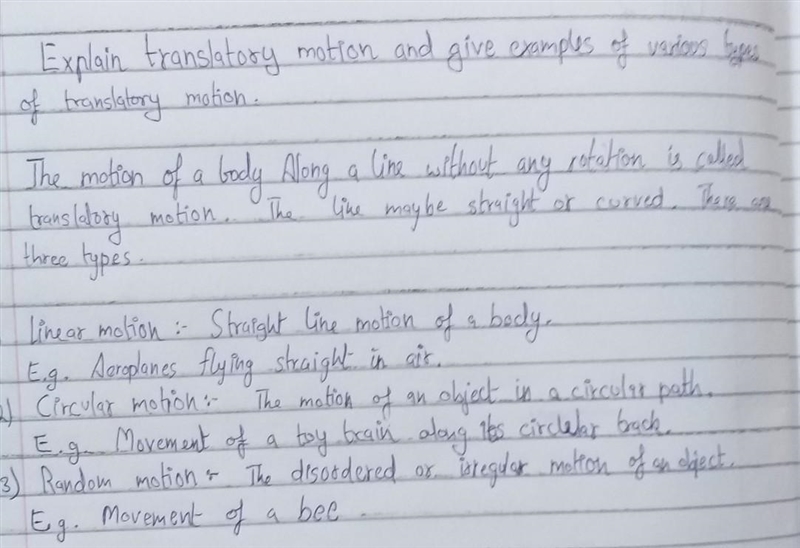 Explain translatory motion and give examples of various types
of translatory motion.
The motion of a body Along a line without any rotation is called
translatory motion. The line maybe straight or curved. There are
three types.
linear motion :- Straight line motion of a body.
E.g. Aeroplanes flying straight in air.
2) Circular motion:- The motion of an object in a circular path.
E.g. Movement of a toy train along its circular track.
3) Random motion :- The disordered or irregular motion of an object.
E.g. Movement of a bee.